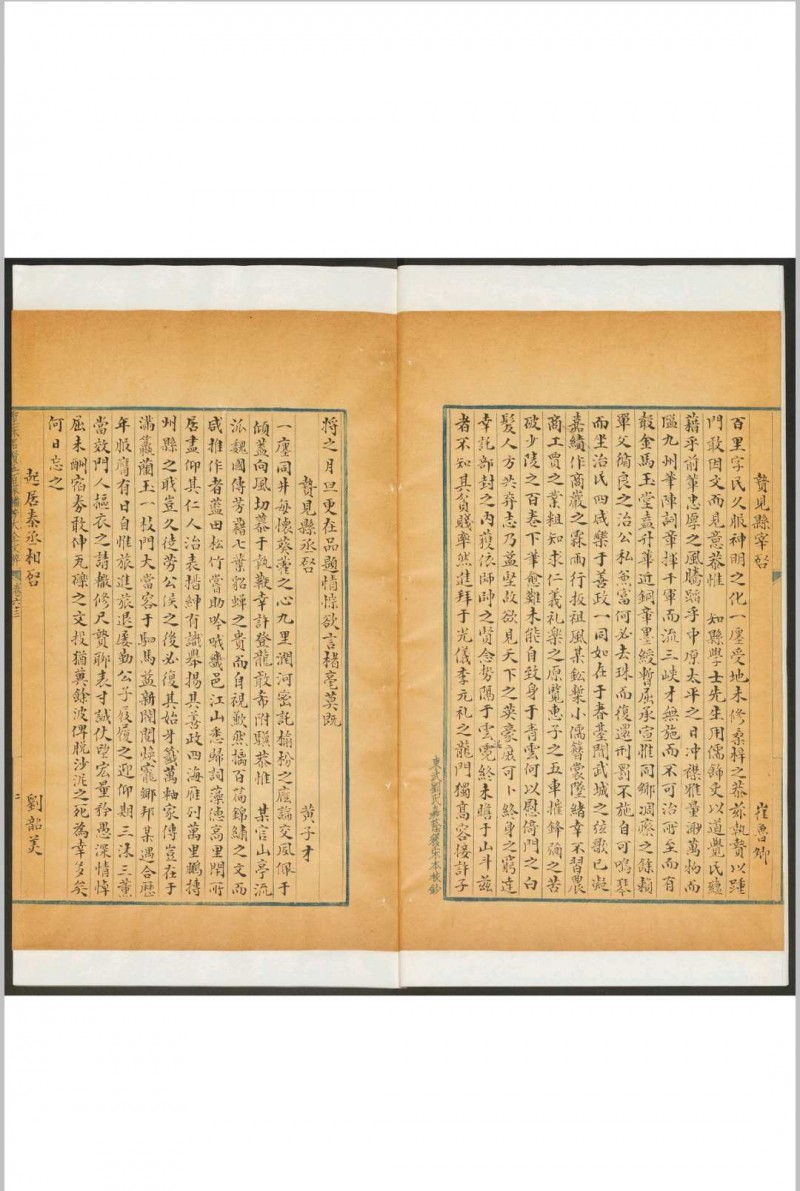 贄見縣宰啓 崔魯卿
百里字民久服神明之化一廛受地未修桑梓之恭茲執贄以踵
門敢因文而見意恭惟 知縣學士先生用儒飾吏以道覺民蘊
藉乎前輩忠厚之風騰踏乎中原太平之日冲襟雅量瀰萬物而
隘九州華陣詞華揮千軍而流三峽才無施而不可治所至而有
聲金馬玉堂盍升華近銅章墨綬暫屈承宣惟同鄉凋瘵之餘賴
單父循良之治公私兼富何必去珠而復還刑罰不施自可鳴琴
而坐治民四咸樂于善政一同如在于春臺聞武城之弦歌已凝
嘉績作商巖之霖雨行扳祖風某鉛槧小儒簪裳墜緒幸不習農
商工賈之業粗知求仁義禮樂之原覽惠子之五車摧鋒彌之苦
破少陵之百卷下筆愈難未能自致身于青雲何以慰倚門之白
髮人方共弃志乃益堅故欲見天下之英豪庶可卜終身之窮達
幸託部封之内獲依師帥之賢念勢隔于雲霓終未瞻于山斗茲
者不知其貧賤率然進拜于光儀李元礼之龍門獨高容接許子
東武劉氏嘉蔭簃宋本校鈔
將之月旦更在品題情悰欲言楮毫莫既
贄見縣丞啓 黃子才
一廛同井每懷葵藿之心九里潤河密託榆枌之庇論交夙佩于
傾盖向風切慕于執鞭幸許登龍敢希附驥恭惟 某官山亭流
派魏國傳芳藉七葉貂蟬之貴而自視歉然摛百篇錦繡之文而
咸推作者藍田松竹嘗助吟哦畿邑江山悉歸詞藻德高里閈所
居盡仰其仁人治表搢紳有識舉揚其善政四海雁列萬里鵬摶
州縣之職豈久徒勞公侯之後必復其始牙籤萬軸家傳豈在于
滿籯蘭玉一枝門大當容于駟馬益新閥閱煥寵鄉邦某遇合歷
年服膺有日自惟旅進旅退屢勤公子屐履之迎仰期三沐三薰
當效門人摳衣之請輒修尺贄聊表寸誠仗望宏量矜愚深情悼
屈未酬宿券敢伸瓦礫之文投猶冀餘波俾脫沙泥之死為幸多矣
何日忘之
起居秦丞相啓 劉韶美